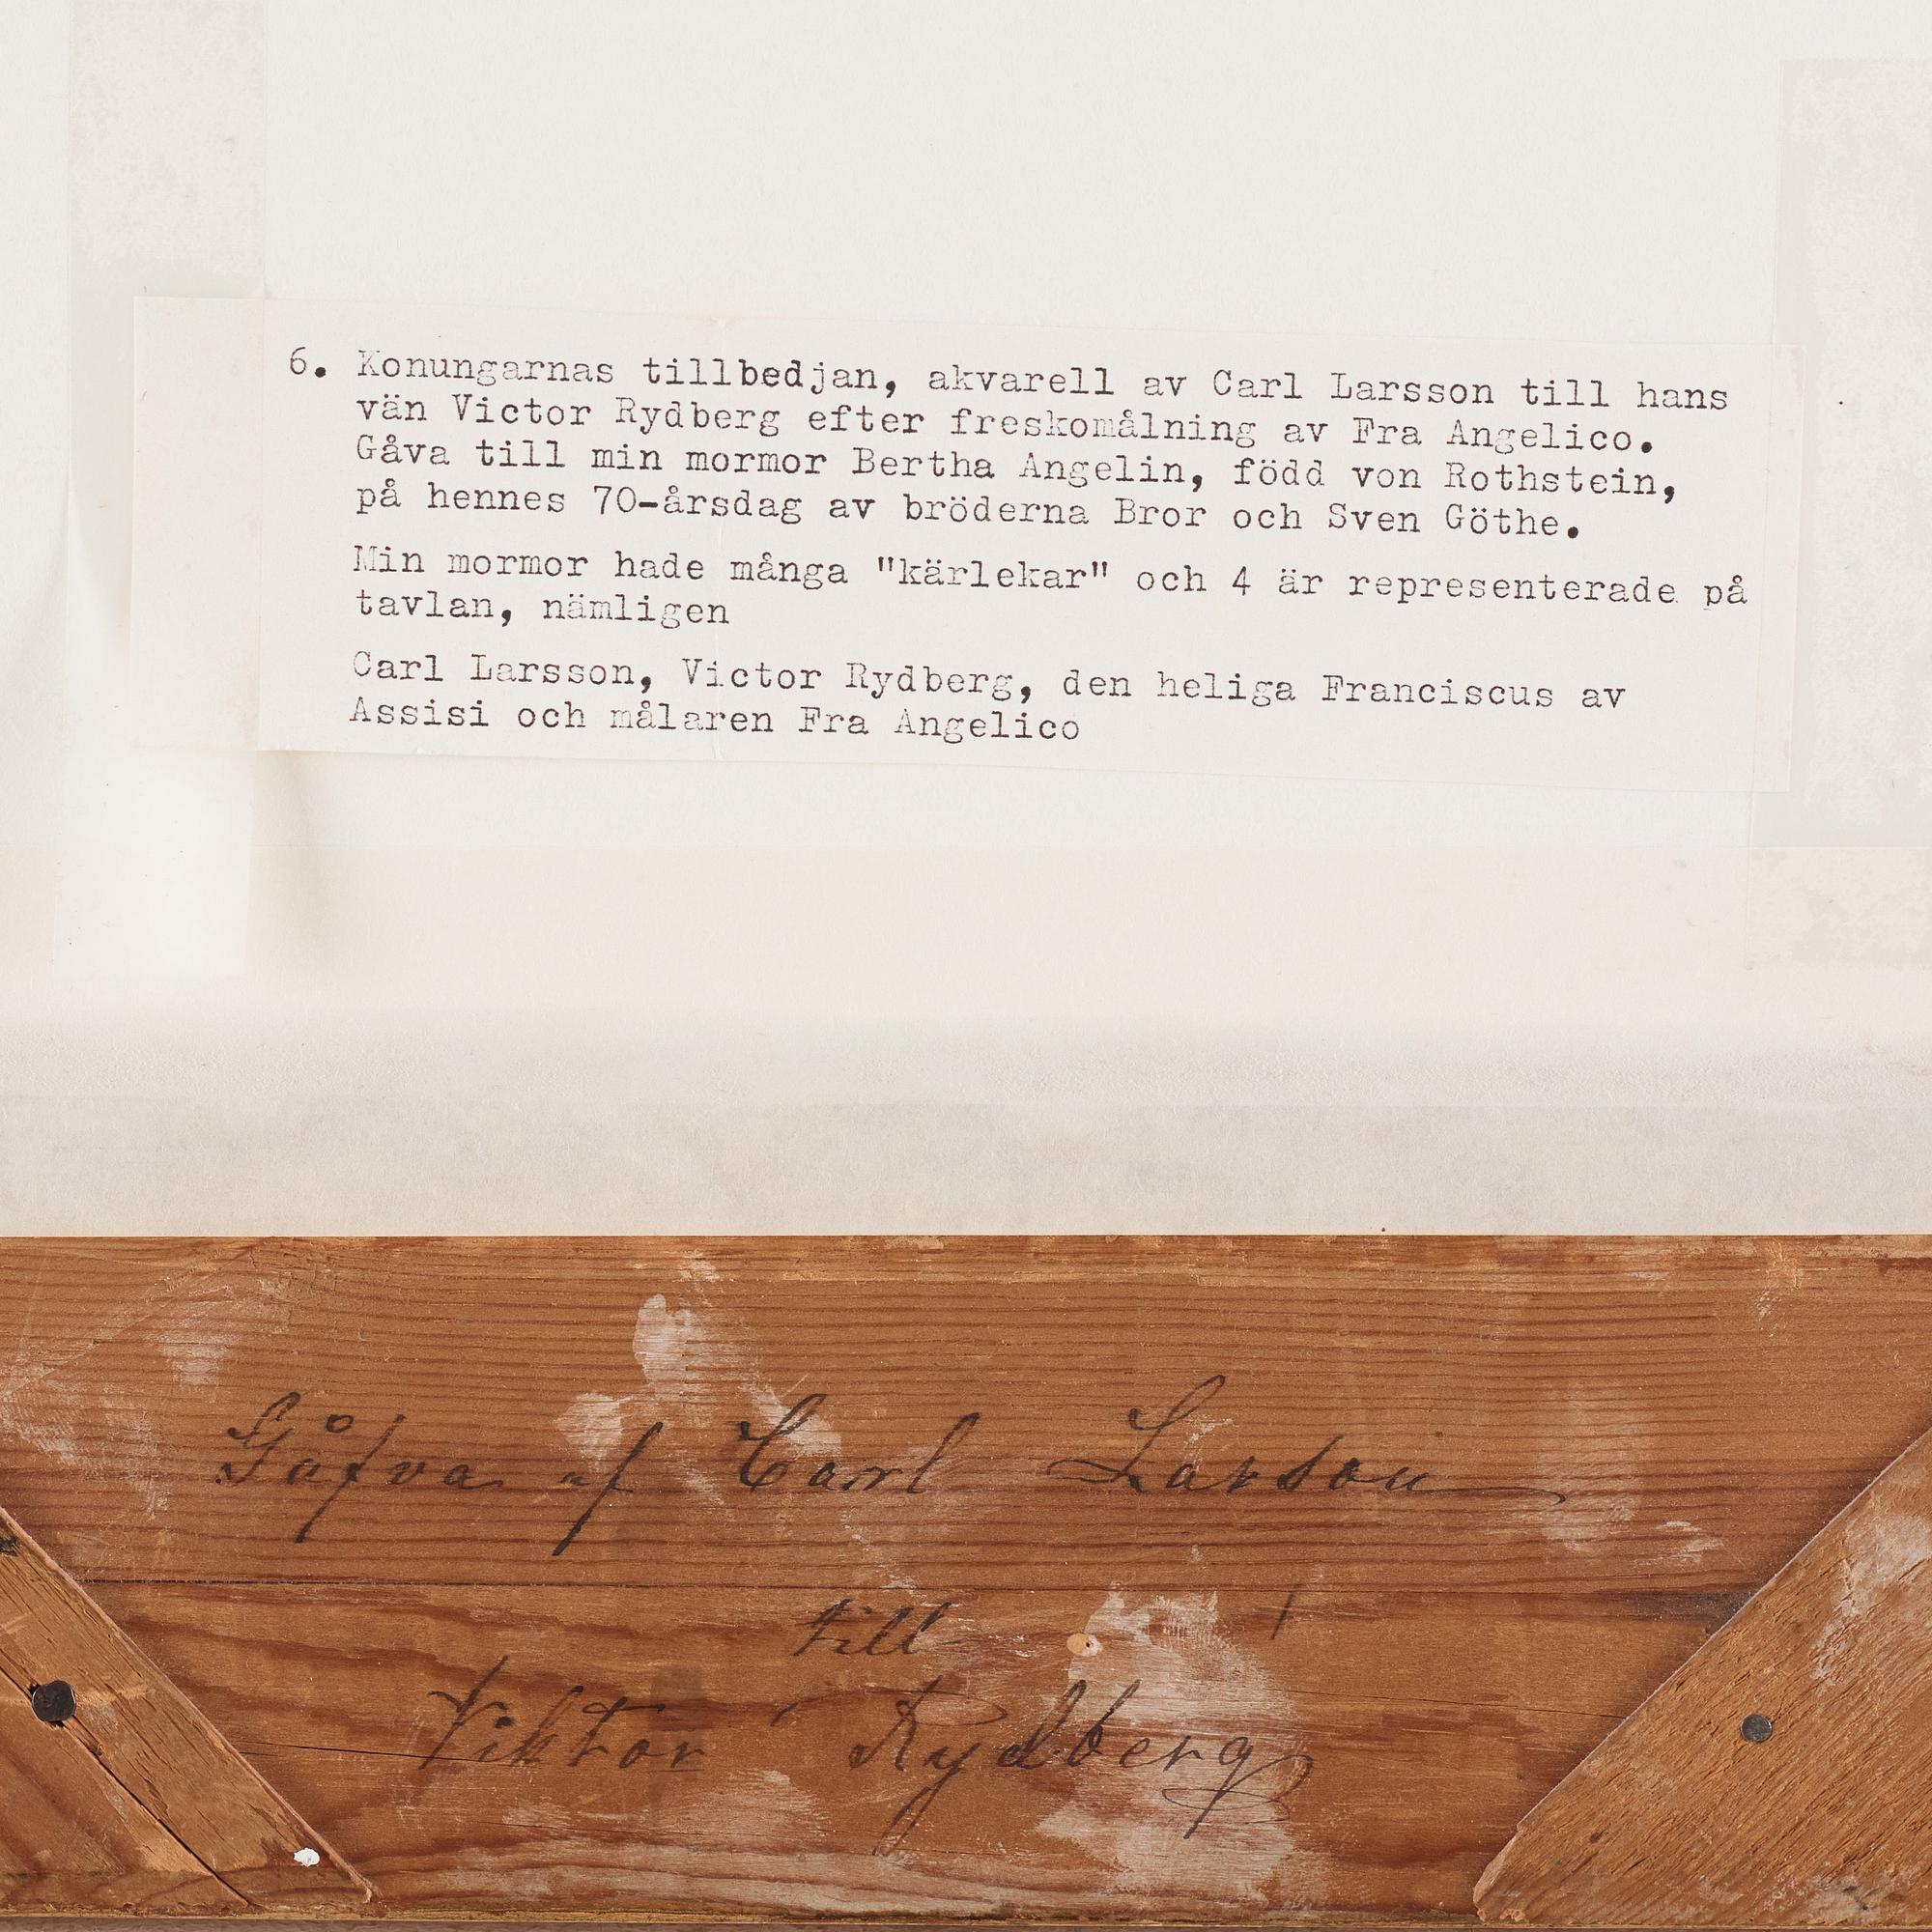 6. Konungarnas tillbedjan, akvarell av Carl Larsson till hans
vän Victor Rydberg efter freskomålning av Fra Angelico.
Gåva till min mormor Bertha Angelin, född von Rothstein,
på hennes 70-årsdag av bröderna Bror och Sven Göthe.
Min mormor hade många "kärlekar" och 4 är representerade på
tavlan, nämligen
Carl Larsson, Victor Rydberg, den heliga Franciscus av
Assisi och målaren Fra Angelico
Gåfva af Carl Larson
till
Viktor Rydberg